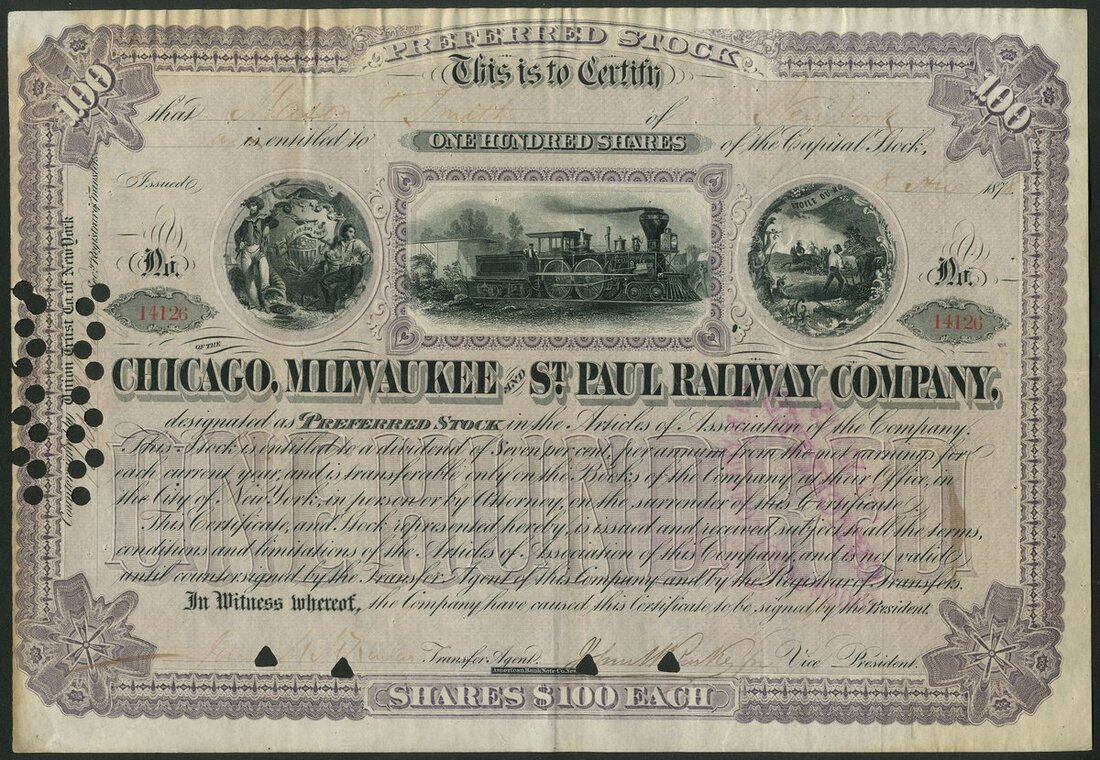 PREFERRED STOCK
This is to Certify
100
100
that Mason T Smith of New York
is entitled to ONE HUNDRED SHARES of the Capital Stock,
Issued 187
No. 14126
No. 14126
OF THE
CHICAGO, MILWAUKEE AND ST. PAUL RAILWAY COMPANY,
designated as PREFERRED STOCK in the Articles of Association of the Company.
This Stock is entitled to a dividend of Seven per cent, per annum from the net earnings for
each current year, and is transferable only on the Books of the Company at their Office, in
the City of New York, in person or by Attorney, on the surrender of this Certificate.
This Certificate, and Stock represented hereby, is issued and received subject to all the terms,
conditions and limitations of the Articles of Association of this Company, and is not valid
until countersigned by the Transfer Agent of this Company and by the Registrar of Transfers.
ONE HUNDRED
In Witness whereof, the Company have caused this Certificate to be signed by the President.
Transfer Agent. Vice President.
American Bank Note Co. New
SHARES $100 EACH
Union Trust Co. of New York
Registrar of Transfers